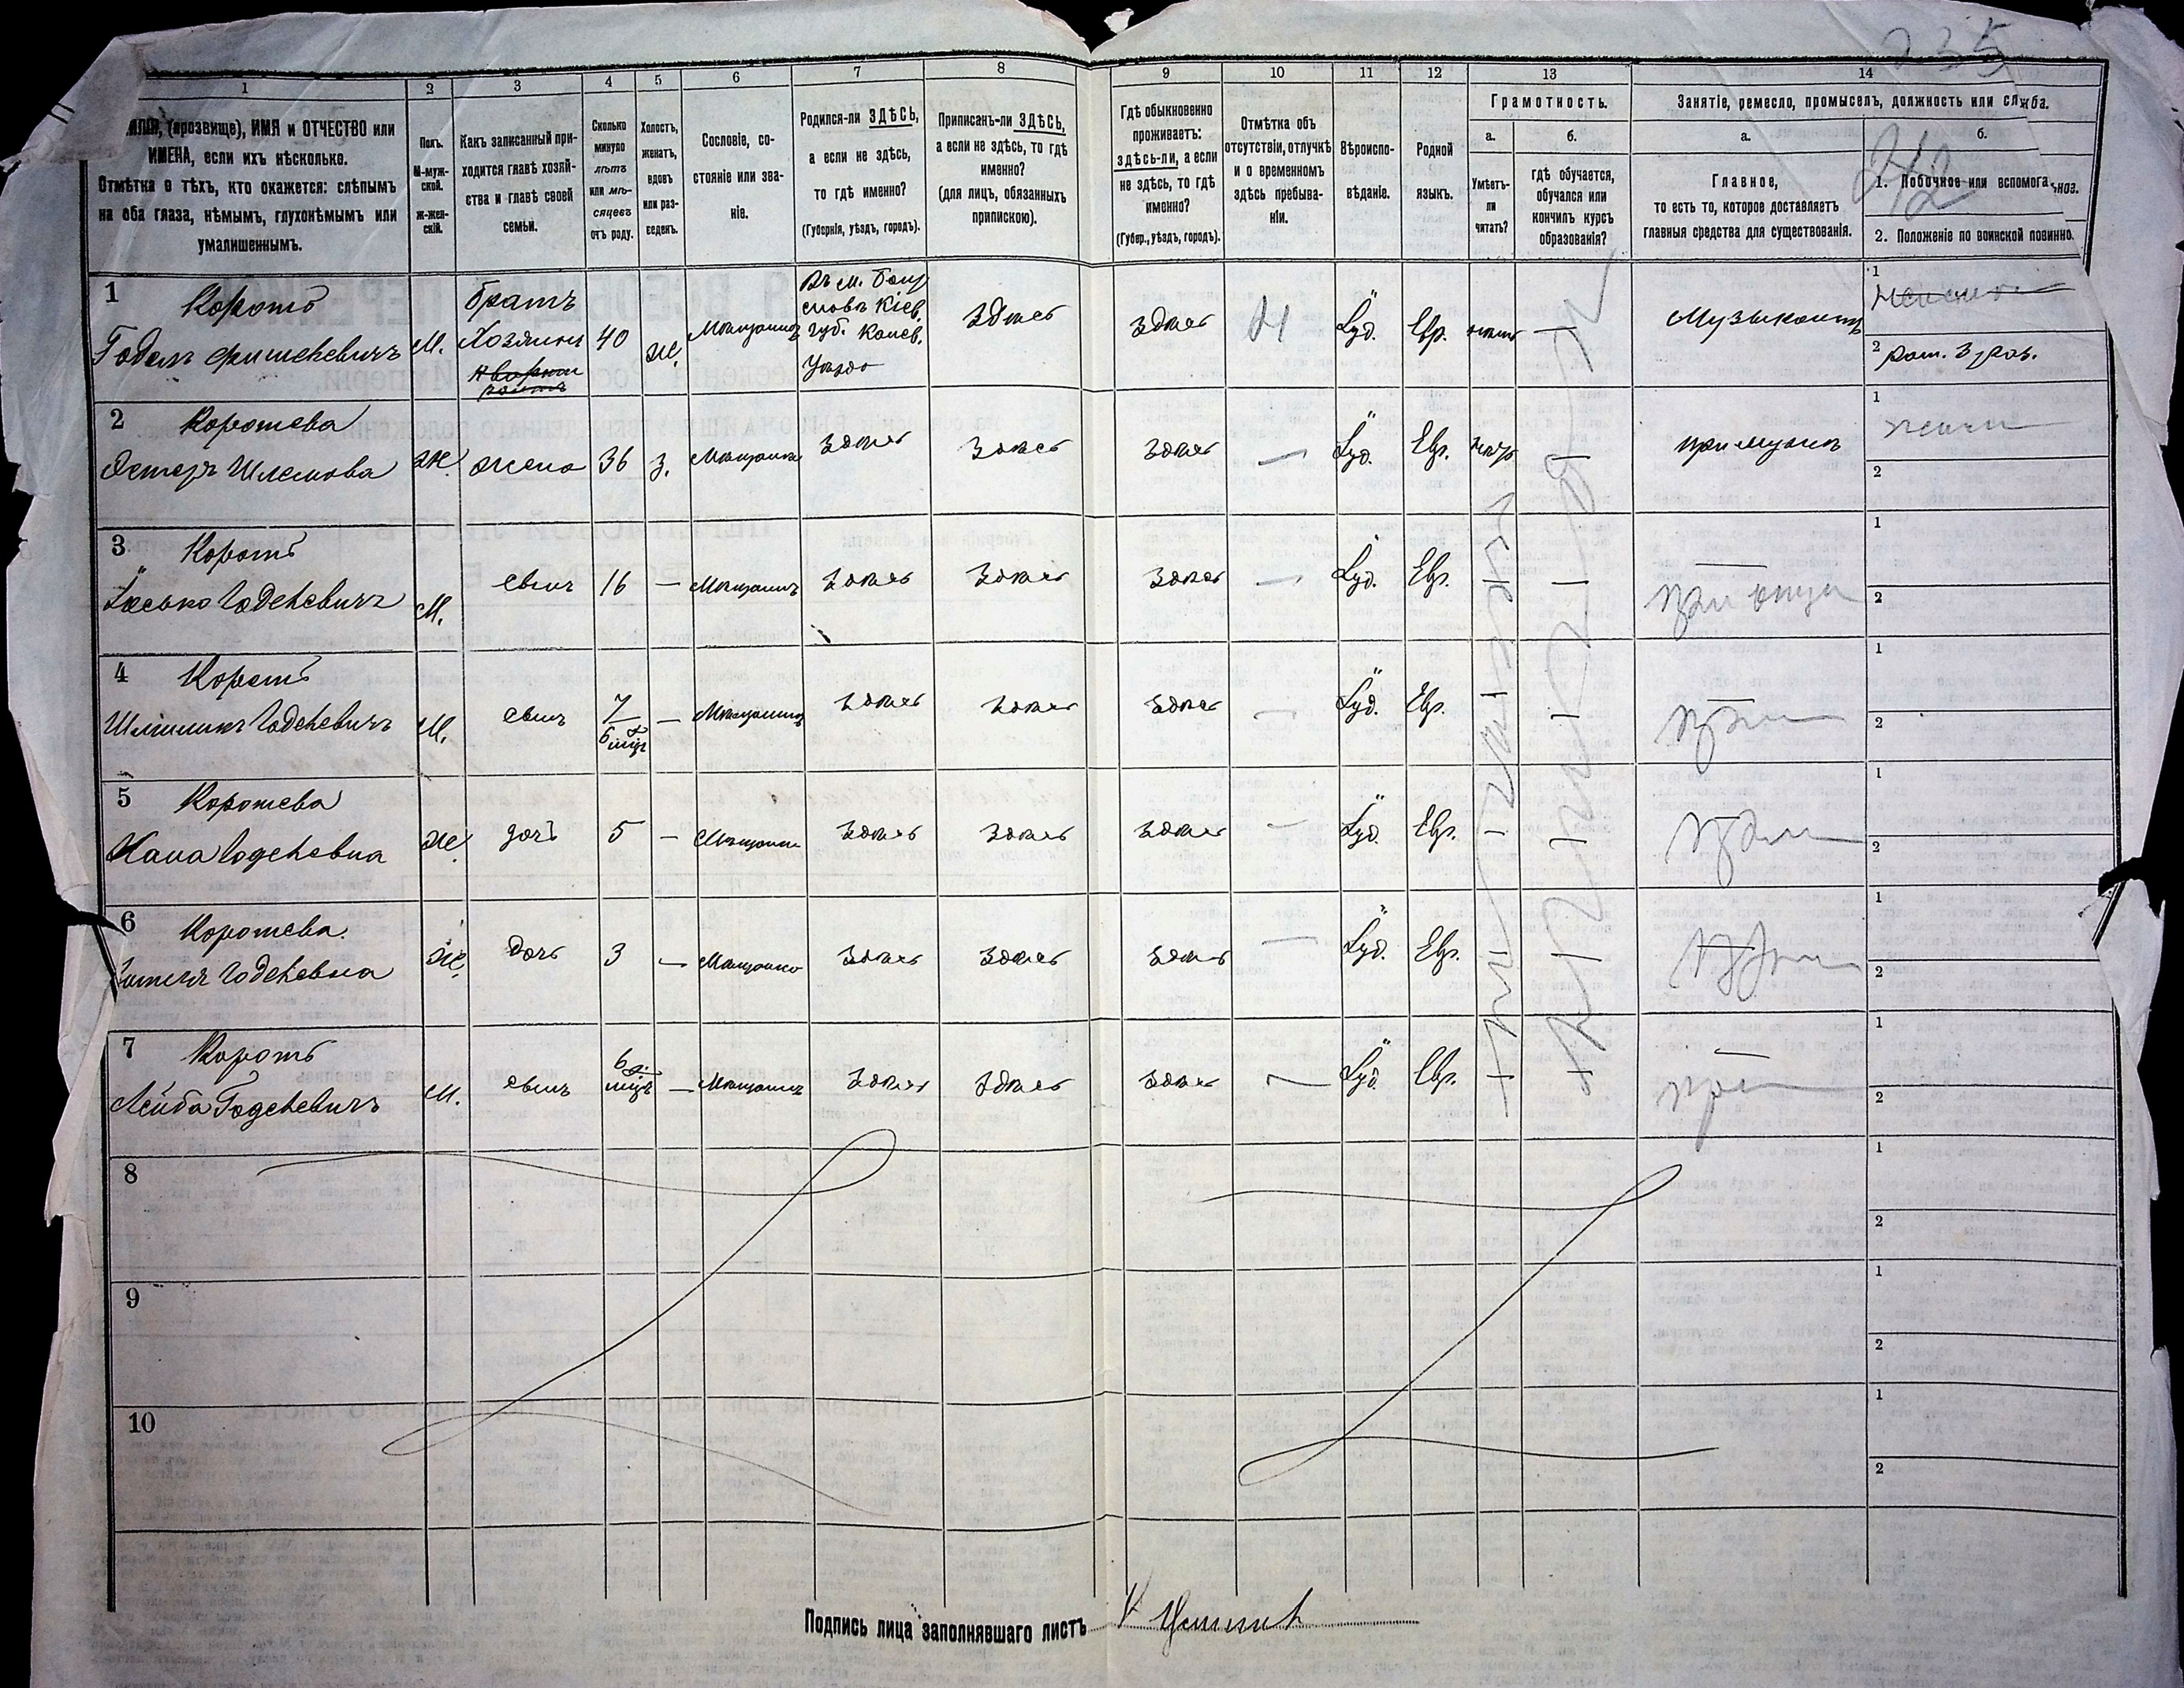 235
1 2 3 4 5 6 7 8 9 10 11 12 13 14
(прозвище), ИМЯ и ОТЧЕСТВО или
ИМЕНА, если ихъ нѣсколько.
Отмѣтка о тѣхъ, кто окажется: слѣпымъ
на оба глаза, нѣмымъ, глухонѣмымъ или
умалишеннымъ.
Полъ.
М-муж-
ской.
Ж-жен-
скій.
Какъ записанный при-
ходится главѣ хозяй-
ства и главѣ своей
семьи.
Сколько
минуло
лѣтъ
или мѣ-
сяцевъ
отъ роду.
Холостъ,
женатъ,
вдовъ
или раз-
веденъ.
Сословіе, со-
стояніе или зва-
ніе.
Родился-ли ЗДѢСЬ,
а если не здѣсь,
то гдѣ именно?
(Губернія, уѣздъ, городъ).
Приписанъ-ли ЗДѢСЬ,
а если не здѣсь, то гдѣ
именно?
(для лицъ, обязанныхъ
припискою).
Гдѣ обыкновенно
проживаетъ:
здѣсь-ли, а если
не здѣсь, то гдѣ
именно?
(Губер., уѣздъ, городъ).
Отмѣтка объ
отсутствіи, отлучкѣ
и о временномъ
здѣсь пребыва-
ніи.
Вѣроиспо-
вѣданіе.
Родной
языкъ.
Грамотность.
а.
Умѣетъ-
ли
читать?
б.
гдѣ обучается,
обучался или
кончилъ курсъ
образованія?
Занятіе, ремесло, промыселъ, должность или служба.
а.
Главное,
то есть то, которое доставляетъ
главныя средства для существованія.
б.
1. Побочное или вспомога
2. Положеніе по воинской повинно
1
Коротъ
М.
братъ
Хозяина
40
ж.
Мѣщанинъ
Кіев.
губ. Канев.
Уѣзда
здѣсь
здѣсь
Іуд.
Евр.
Музыкантъ
1
2
2
Коротева
Естеръ Шлемова
Ж.
жена
36
з.
Мѣщанка
здѣсь
здѣсь
здѣсь
—
Іуд.
Евр.
при мужѣ
1
2
3
Коротъ
Іосько Годелевичъ
М.
сынъ
16
—
Мѣщанинъ
здѣсь
здѣсь
здѣсь
—
Іуд.
Евр.
—
—
при отцѣ
1
2
4
Коротъ
Годелевичъ
М.
сынъ
7
6
—
Мѣщанинъ
здѣсь
здѣсь
здѣсь
—
Іуд.
Евр.
—
1
2
5
Коротева
Хана Годелевна
Ж.
дочь
5
—
Мѣщанка
здѣсь
здѣсь
здѣсь
—
Іуд.
Евр.
—
1
2
6
Коротева
Годелевна
Ж.
дочь
3
—
Мѣщанка
здѣсь
здѣсь
здѣсь
—
Іуд.
Евр.
—
1
2
7
Коротъ
Лейба Годелевичъ
М.
сынъ
6
—
Мѣщанинъ
здѣсь
здѣсь
здѣсь
—
Іуд.
Евр.
—
1
2
8
1
2
9
1
2
10
1
2
Подпись лица заполнявшаго листъ